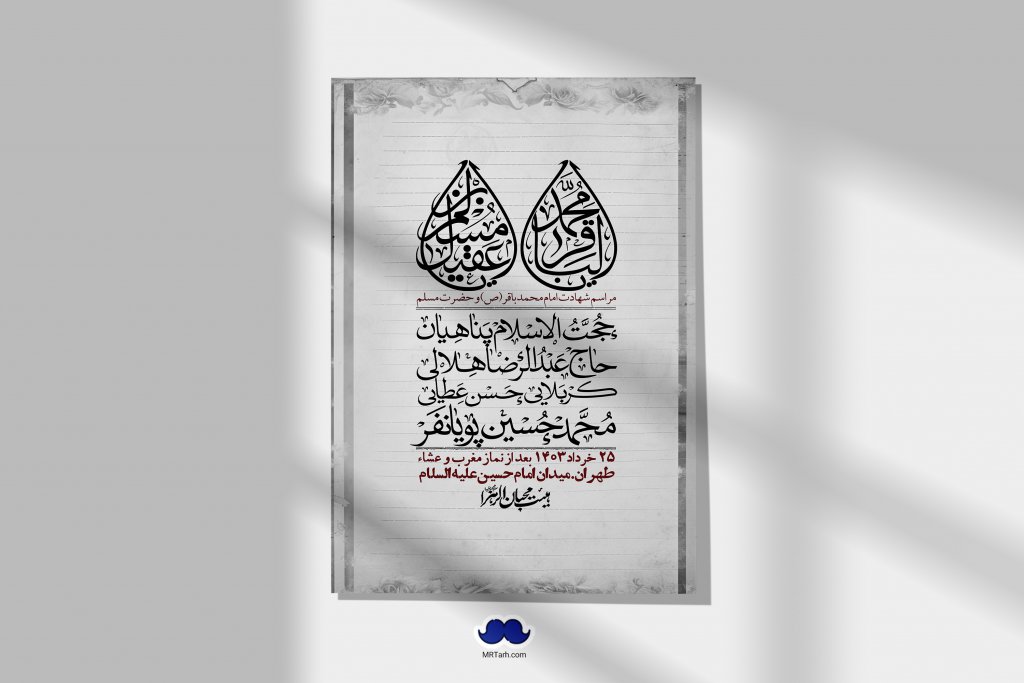 محمد الباقر
مسلم بن عقیل
مراسم شهادت امام محمد باقر (ص) و حضرت مسلم
حُجَّتُ الاسلام پناهیان
حاج عَبدُالرضا هلالی
کربلایی حَسَن عَطایی
مُحَمَّد حُسین پویانفَر
۲۵ خرداد ۱۴۰۳ بعد از نماز مغرب و عشاء
طهران.میدان امام حسین علیه السلام
هیئت محبان الزهرا
MRTarh.com